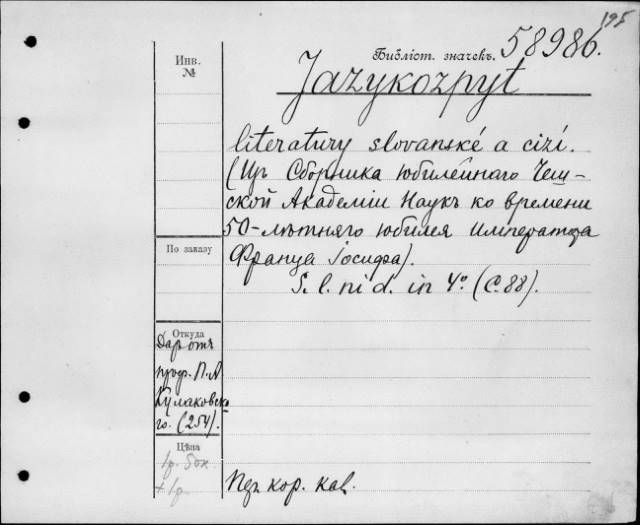 195
Инв.
№
Библіот. значекъ. 58986.
Jazykozpyt
literatury slovanské a cizí.
(Изъ Сборника юбилейнаго Чеш-
ской Академіи Наукъ ко времени
50-лѣтняго юбилея императора
Франца Іосифа).
S. l. ni d. in 4º (С. 88).
По заказу
Откуда
Даръ отъ
проф. П. А.
Кулаковска-
го. (254).
Цѣна
1р. 50к.
+ 1р.
кор. каl.